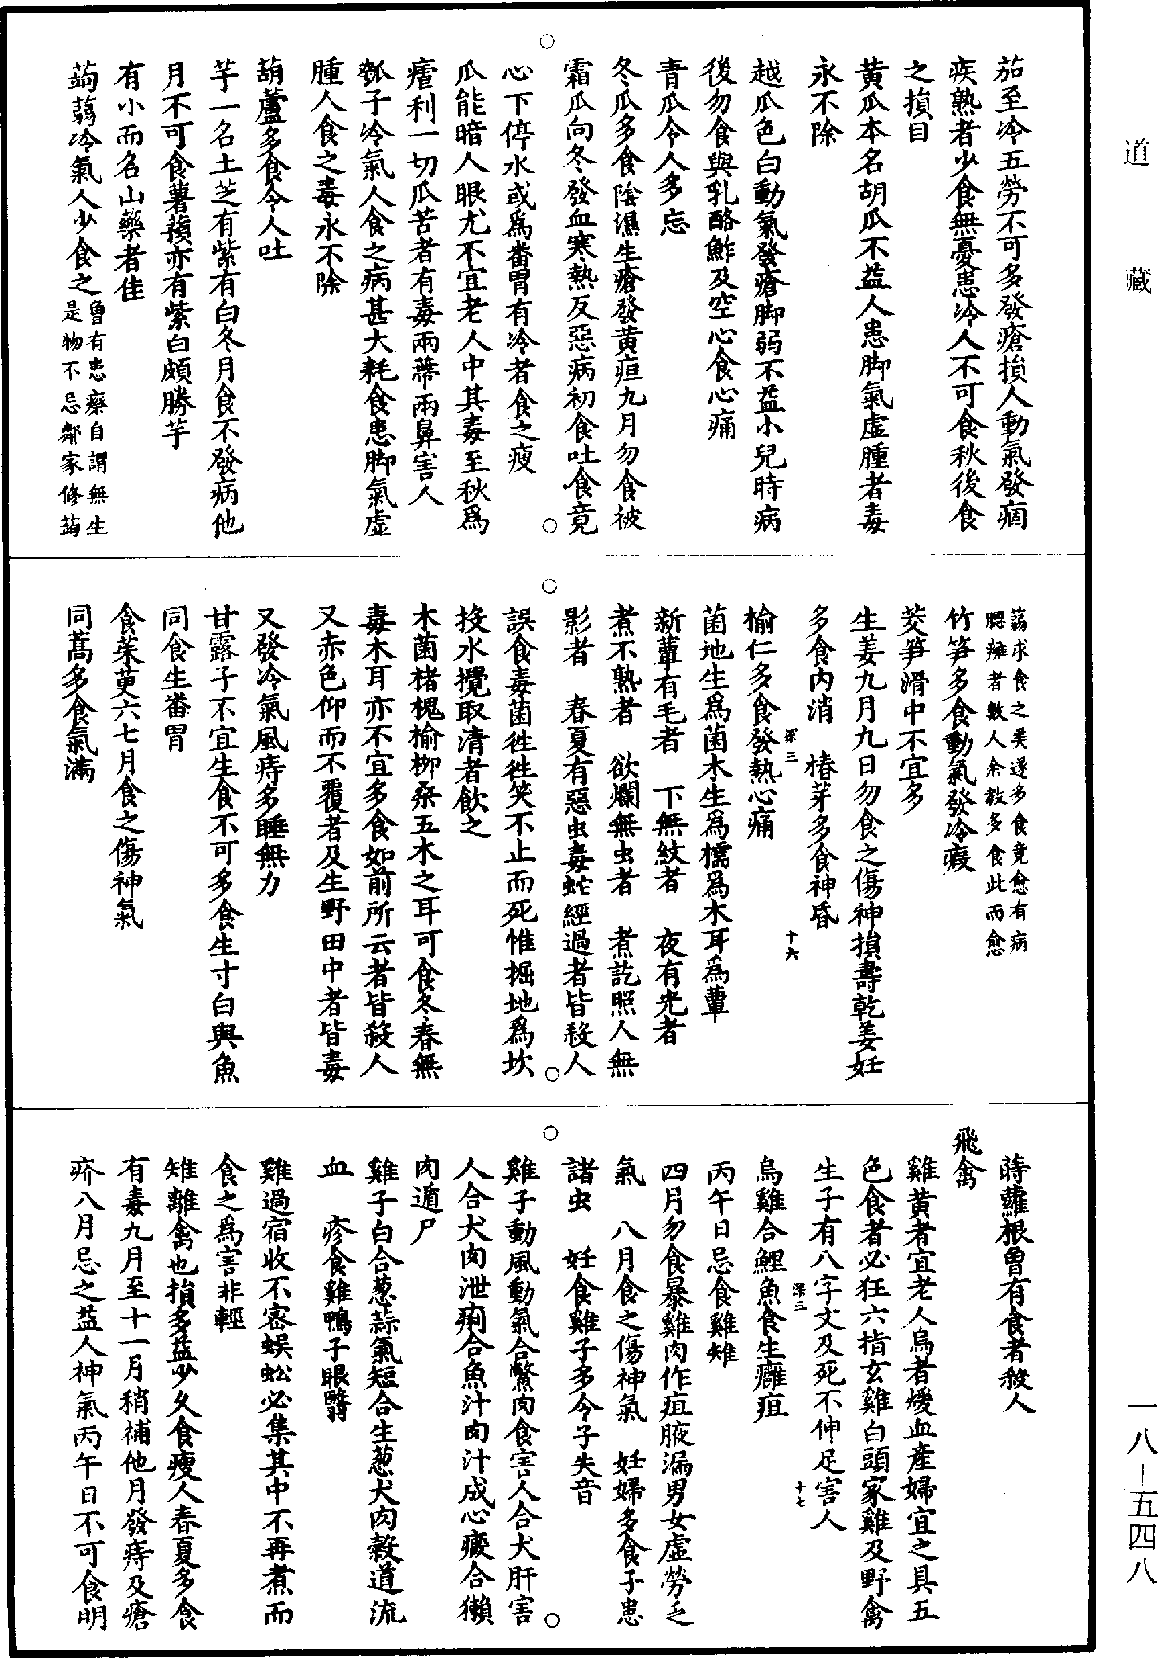 道藏
茄至冷五勞不可多發瘡損人動氣發痼
疾熟者少食無憂患冷人不可食秋後食
之損目
黃瓜本名胡瓜不益人患脚氣虛腫者毒
永不除
越瓜色白動氣發瘡脚弱不益小兒時病
後勿食與乳酪鮓及空心食心痛
青瓜令人多忘
冬瓜多食陰濕生瘡發黃疸九月勿食被
霜瓜向冬發血寒熱反惡病初食吐食竟
心下停水或為番胃有冷者食之瘦
瓜能暗人眼尤不宜老人中其毒至秋為
瘧利一切瓜苦者有毒兩蒂兩鼻害人
瓠子冷氣人食之病甚大耗食患脚氣虛
腫人食之毒永不除
葫蘆多食令人吐
芋一名土芝有紫有白冬月食不發病他
月不可食薯蕷亦有紫白頗勝芋
有小而名山藥者佳
蒟蒻冷氣人少食之曾有患瘵自謂無生
是物不忌鄰家修蒟
蒻求食之美遂多食竟愈有病
腮癰者數人余教多食此而愈
竹笋多食動氣發冷瘕
茭笋滑中不宜多
生姜九月九日勿食之傷神損壽乾姜妊
多食內消 椿芽多食神昏
深三 十六
榆仁多食發熱心痛
菌地生為菌木生為檽為木耳為蕈
新蕈有毛者 下無紋者 夜有光者
煮不熟者 欲爛無虫者 煮訖照人無
影者 春夏有惡虫毒蛇經過者皆殺人
誤食毒菌往往笑不止而死惟掘地為坎
投水攪取清者飲之
木菌楮槐榆柳桑五木之耳可食冬春無
毒木耳亦不宜多食如前所云者皆殺人
又赤色仰而不覆者及生野田中者皆毒
又發冷氣風痔多睡無力
甘露子不宜生食不可多食生寸白與魚
同食生番胃
食茱萸六七月食之傷神氣
同蒿多食氣滿
蒔蘿根曾有食者殺人
飛禽
雞黃者宜老人烏者煖血產婦宜之具五
色食者必狂六指玄雞白頭家雞及野禽
生子有八字文及死不伸足害人
深三 十七
烏雞合鯉魚食生癰疽
丙午日忌食雞雉
四月勿食暴雞肉作疽腋漏男女虛勞乏
氣 八月食之傷神氣 妊婦多食子患
諸虫 妊食雞子多令子失音
雞子動風動氣合鱉肉食害人合犬肝害
人合犬肉泄痢合魚汁肉汁成心瘕合獺
肉遁尸
雞子白合葱蒜氣短合生葱犬肉穀道流
血 疹食雞鴨子眼翳
雞過宿收不密蜈蚣必集其中不再煮而
食之為害非輕
雉離禽也損多益少久食瘦人春夏多食
有毒九月至十一月稍補他月發痔及瘡
疥八月忌之益人神氣丙午日不可食明
一八—五四八